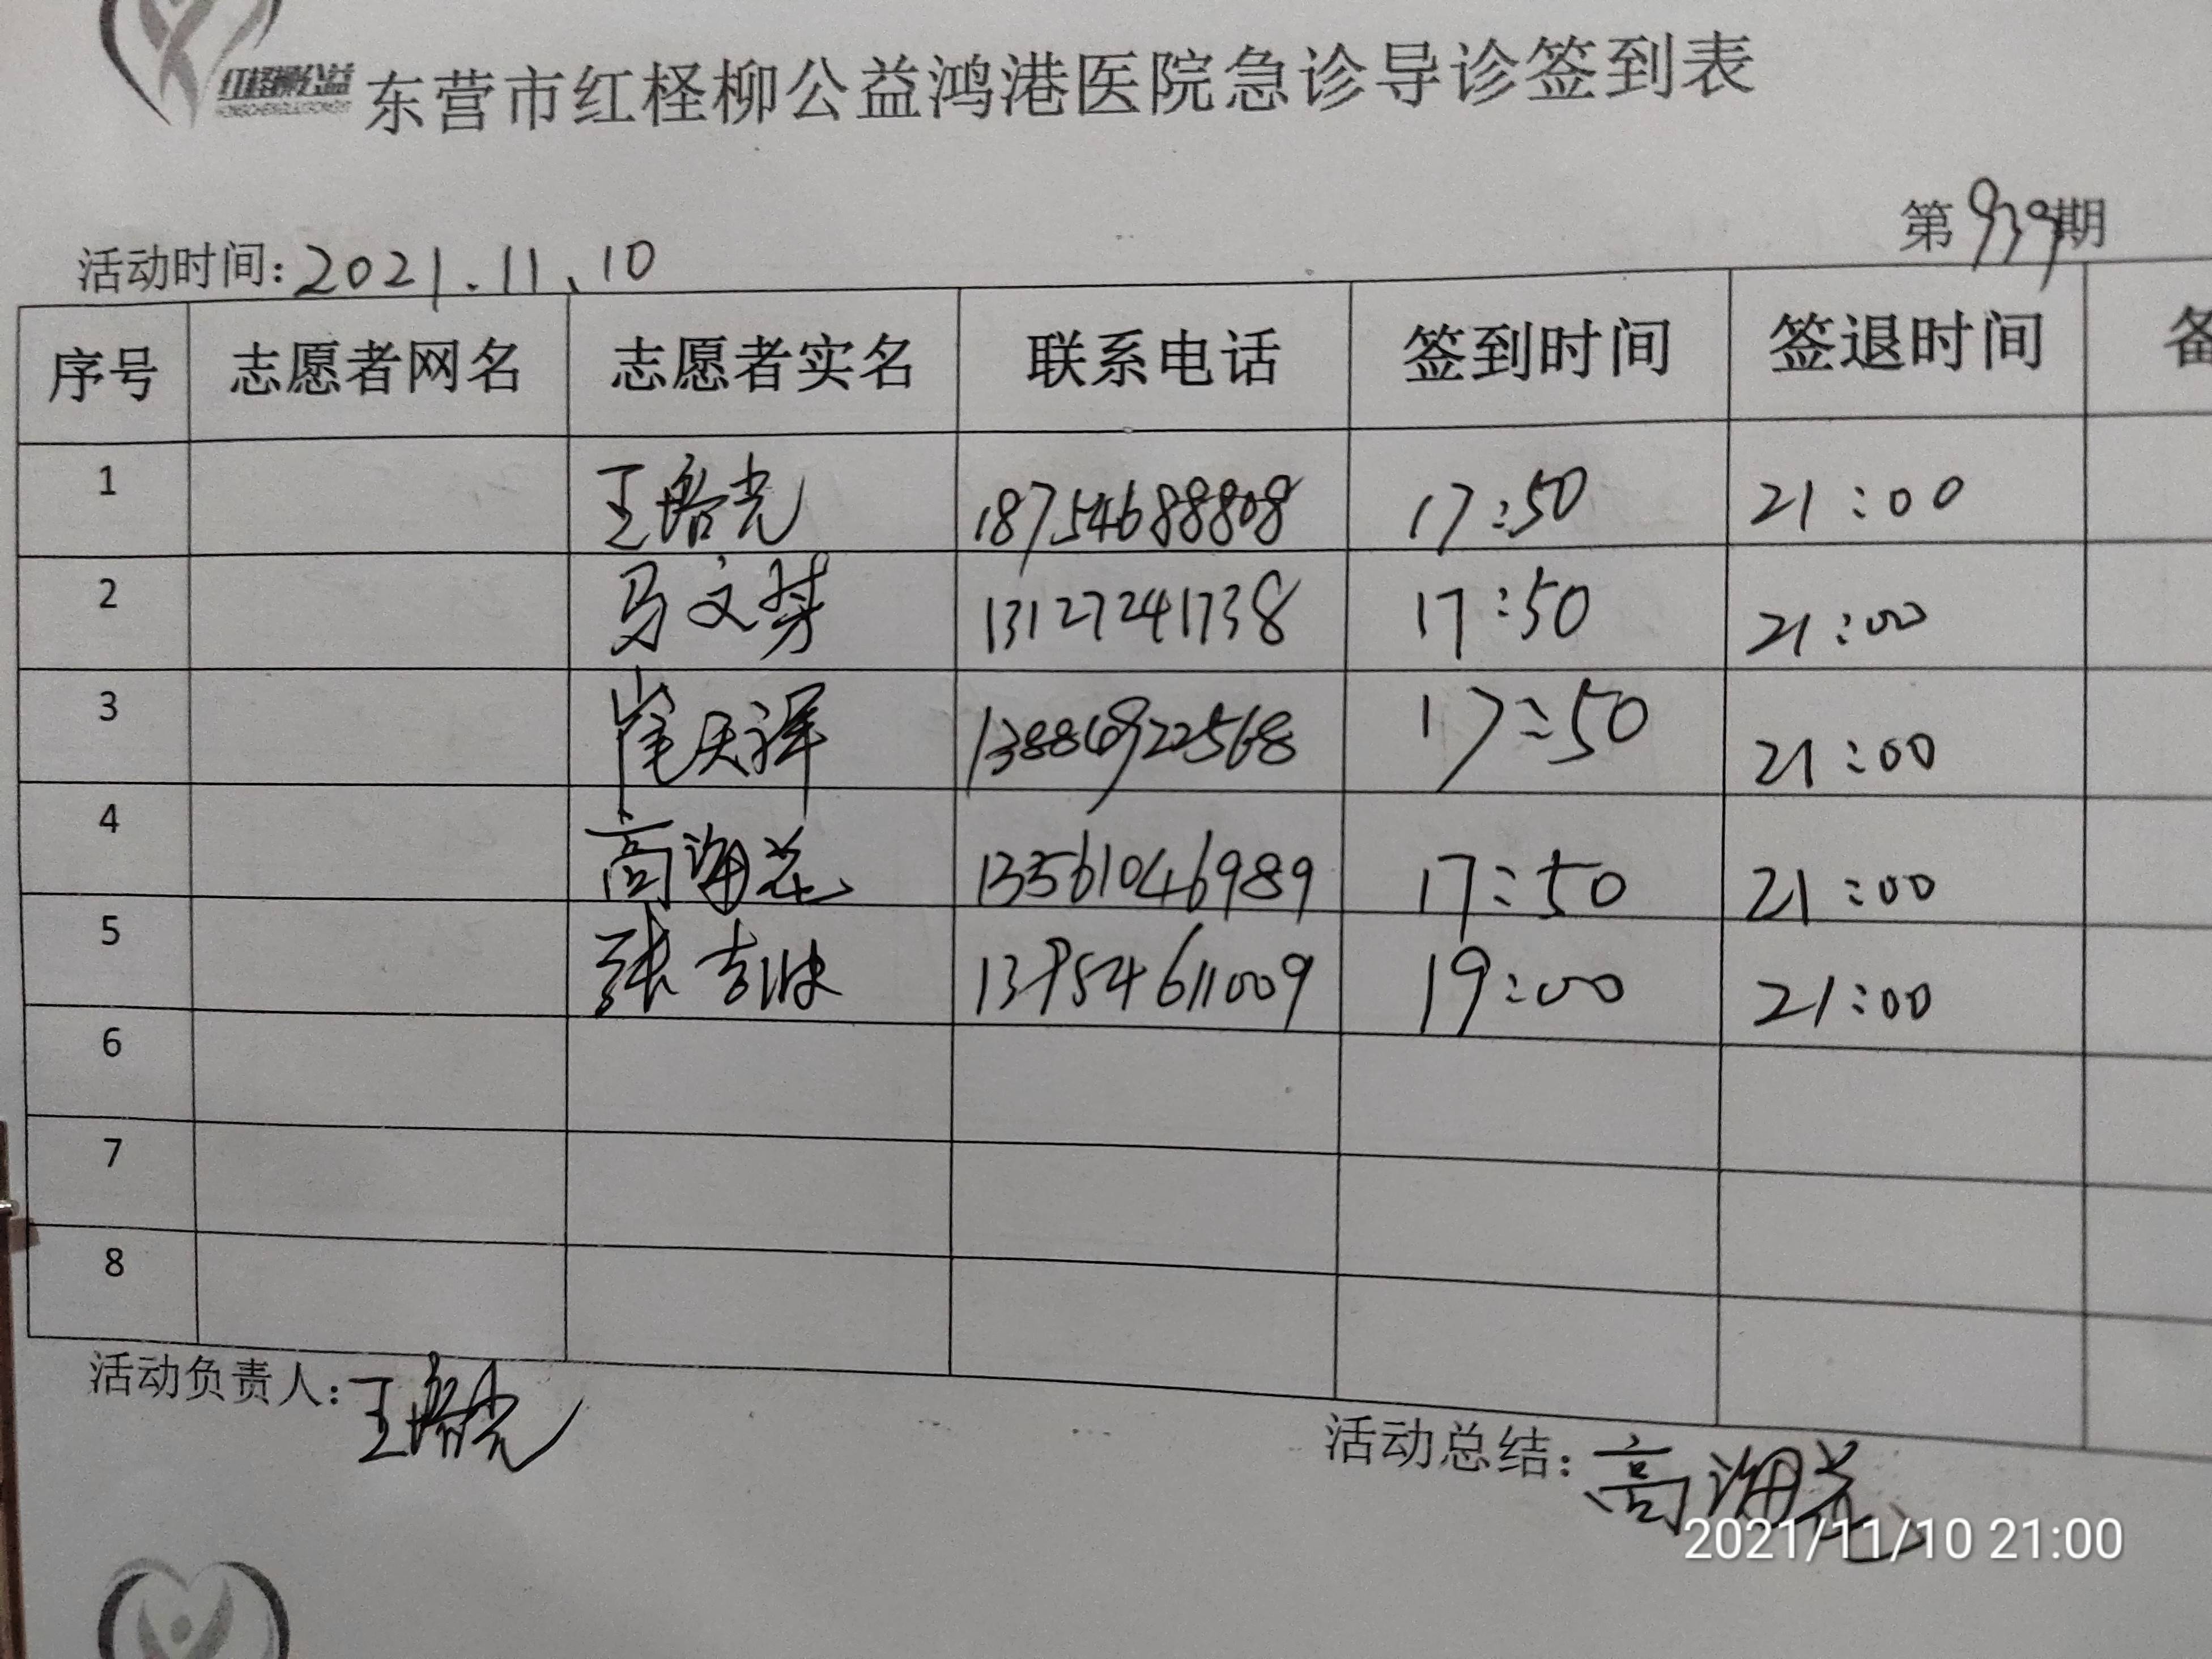 红柽柳公益
东营市红柽柳公益鸿港医院急诊导诊签到表
第939期
活动时间:2021.11.10
序号 志愿者网名 志愿者实名 联系电话 签到时间 签退时间 备
1 王培光 18754688808 17:50 21:00
2 马文 13127241738 17:50 21:00
3 崔天泽 13886922568 17:50 21:00
4 高海花 13561046989 17:50 21:00
5 张吉 13954611009 19:00 21:00
6
7
8
活动负责人:王培光
活动总结:高海花
2021/11/10 21:00